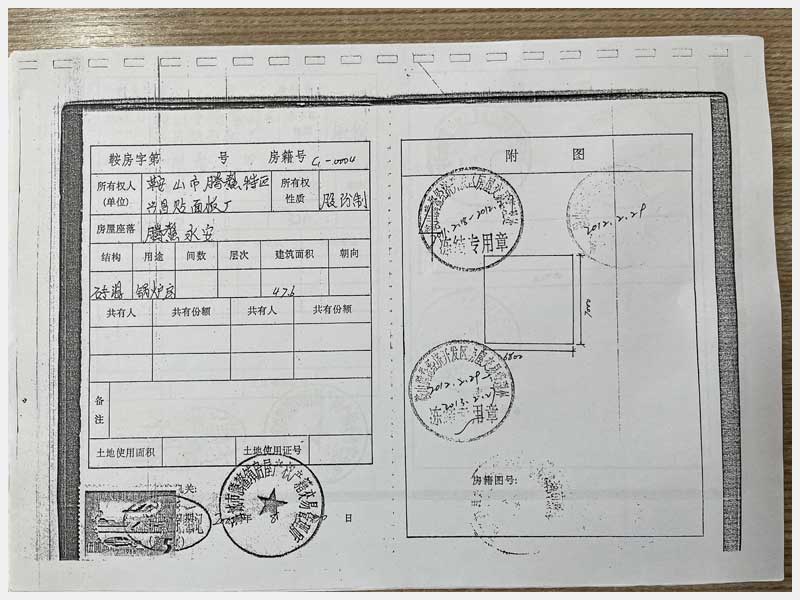 鞍房字第 号 房籍号 G-0004
所有权人 鞍山市腾鳌特区 所有权 股份制
(单位) 贴面板厂 性质
房屋座落 腾鳌永安
结构 用途 间数 层次 建筑面积 朝向
砖混 锅炉房 47.6
共有人 共有份额 共有人 共有份额
备
注
土地使用面积 土地使用证号
机关:
日
附 图
冻结专用章
2012.2.29
7000
6800
2012.2.29-
2013.2.27
房籍图号: